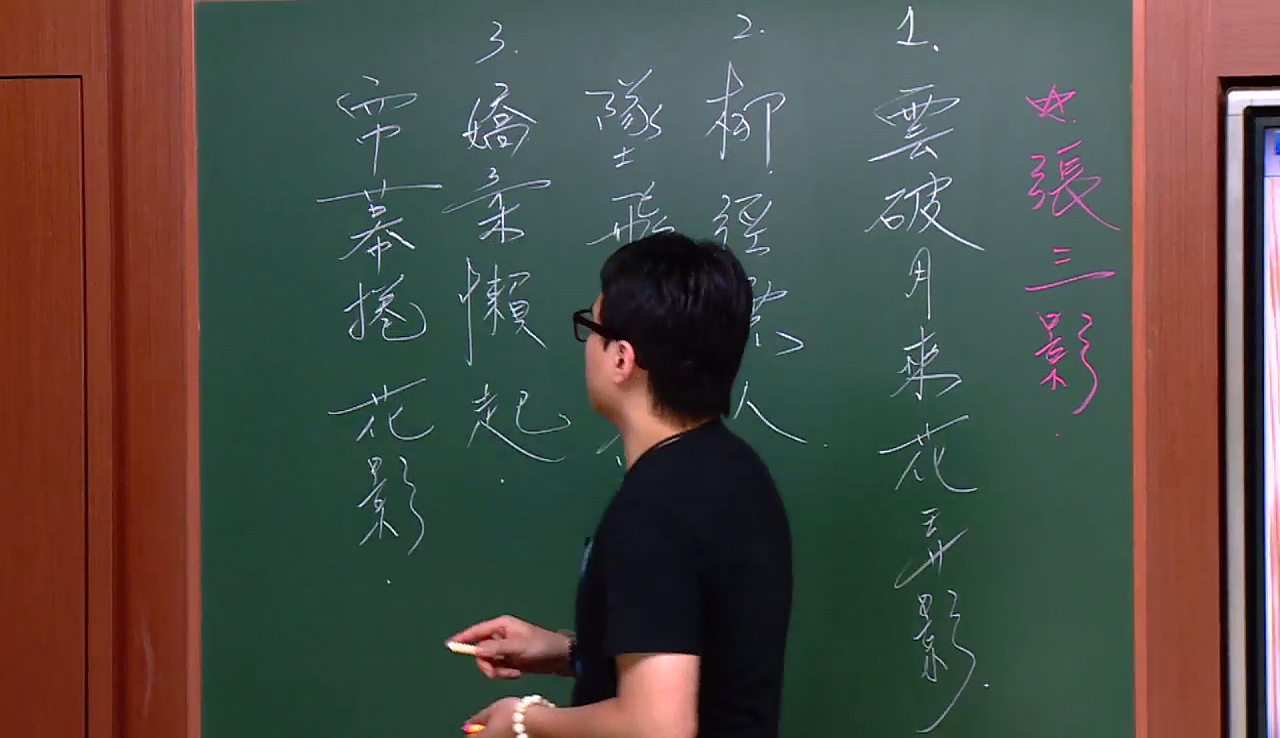 ☆張三影.
1. 雲破月來花弄影.
2. 柳徑人.
墜飛
3. 嬌柔懶起.
帘幕捲花影.